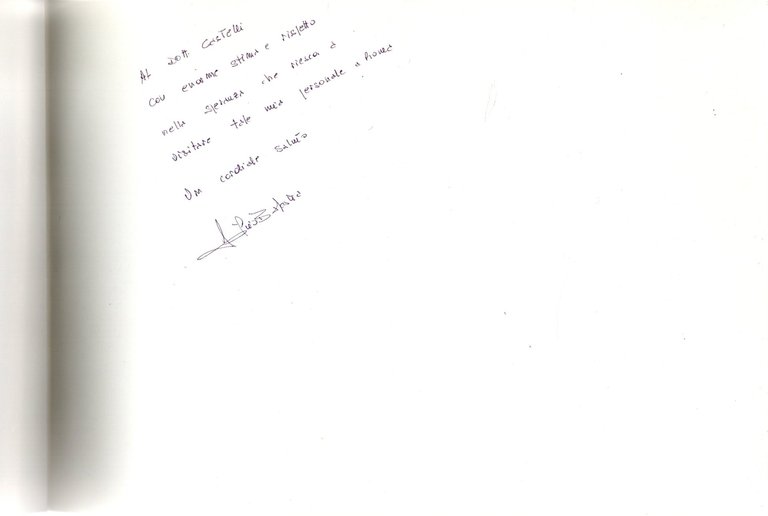 Al Dott Castelli
con enorme stima e rispetto
nella speranza che riesca a
visitare tale mia personale a Roma
Un cordiale saluto